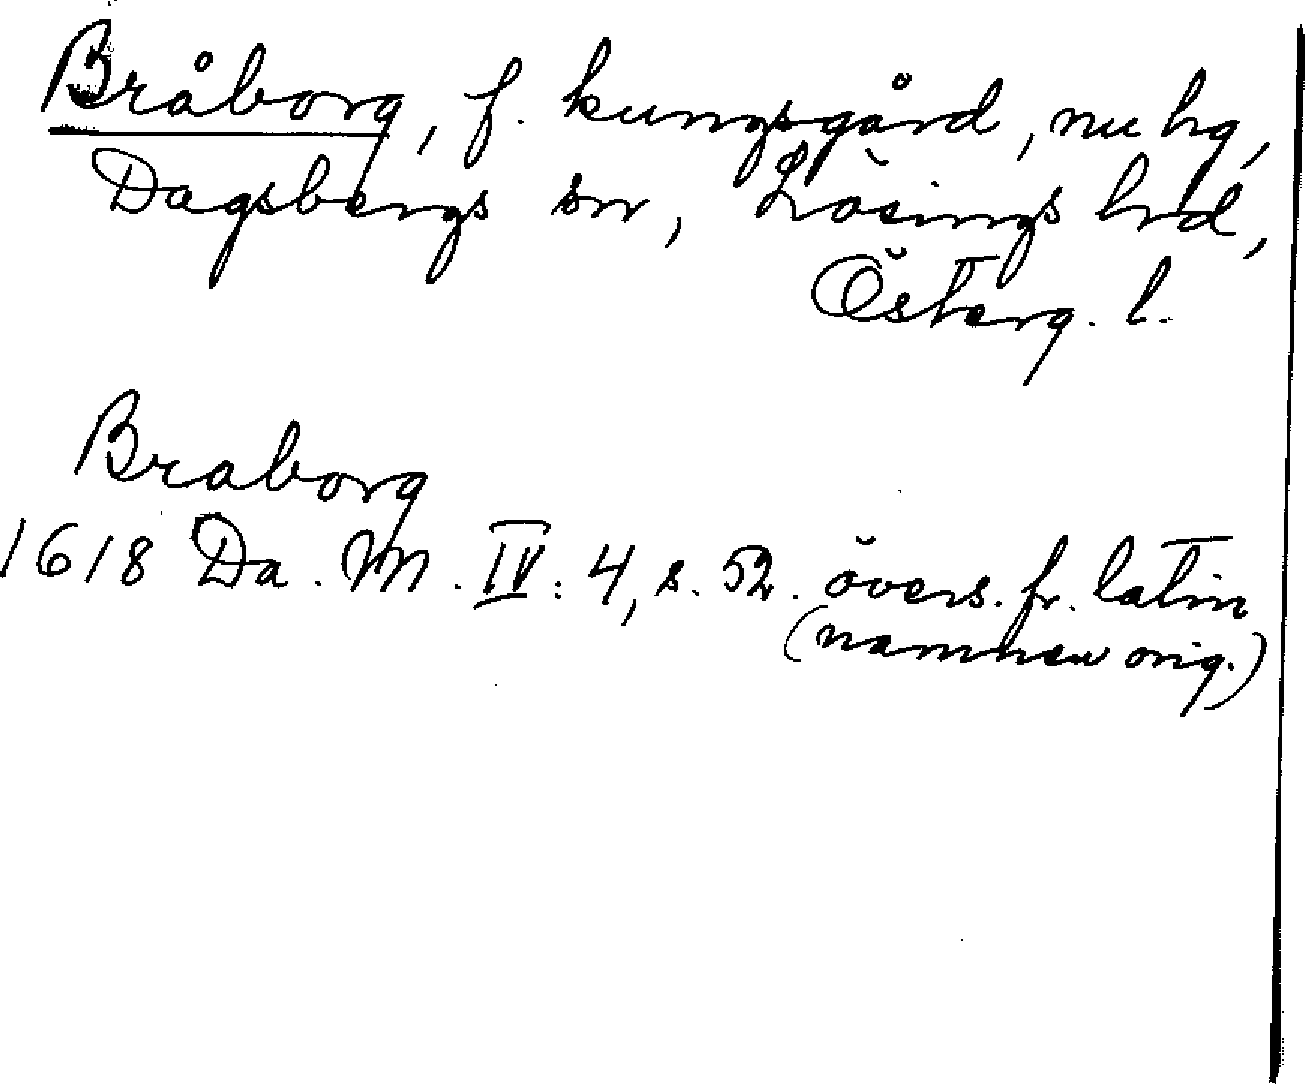 Bråborg, f. kungsgård, nu hg,
Dagsbergs sn, Lösings hrd,
Österg. l.
Braborg
1618 Da. M. IV: 4, s. 52. övers. fr. latin
(namnen orig.)